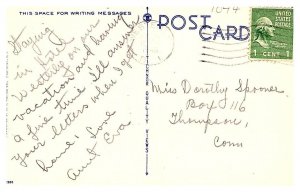 THIS SPACE FOR WRITING MESSAGES
POST CARD
1044
UNITED STATES
POSTAGE
1 CENT 1
Staying
in hotel
on my
vacation and having
a fine time. I'll answer
your letters when I get
home. Love
Aunt Eva
Miss Dorothy Spooner
Box 116
Thompson,
Conn